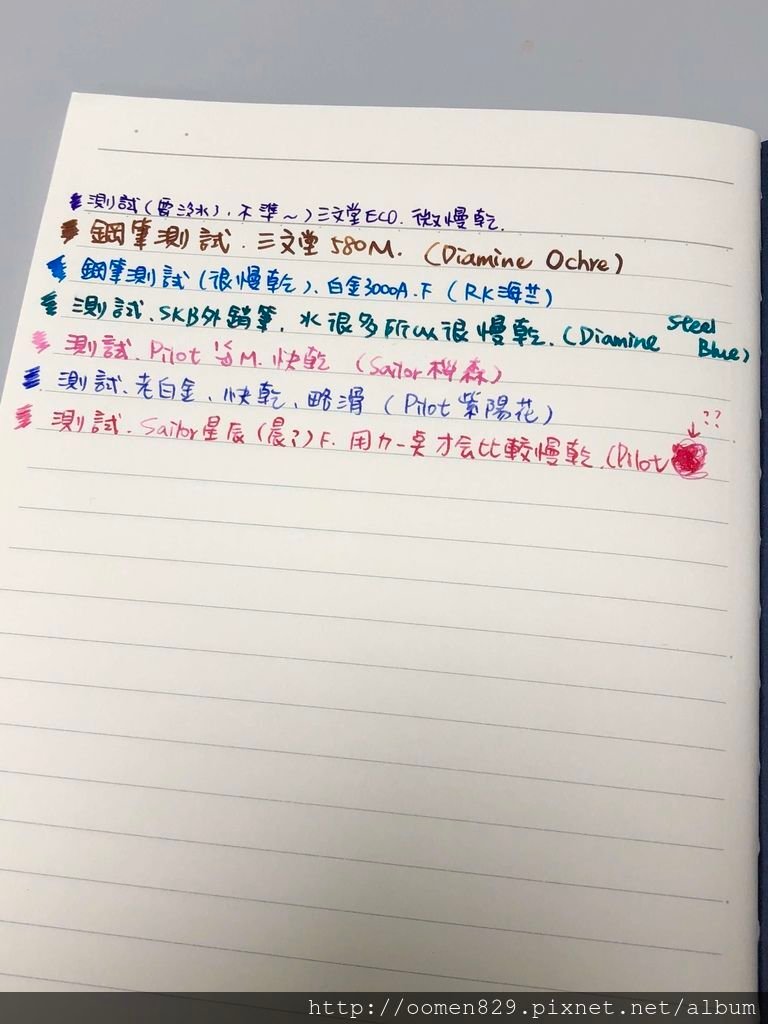 測試(需沾水),不準~)三文堂ECO.微慢乾.
鋼筆測試.三文堂580M.(Diamine Ochre)
鋼筆測試(很慢乾).白金3000A.F(RK海芋)
測試.SKB外銷筆.水很多所以很慢乾.(Diamine Steel Blue)
測試.Pilot M.快乾(Sailor 森)
測試.老白金、快乾、略滑(Pilot紫陽花)
測試.Sailor星辰(晨?)F.用力一点才会比較慢乾.(Pilot
??
http://oomen829.pixnet.net/album